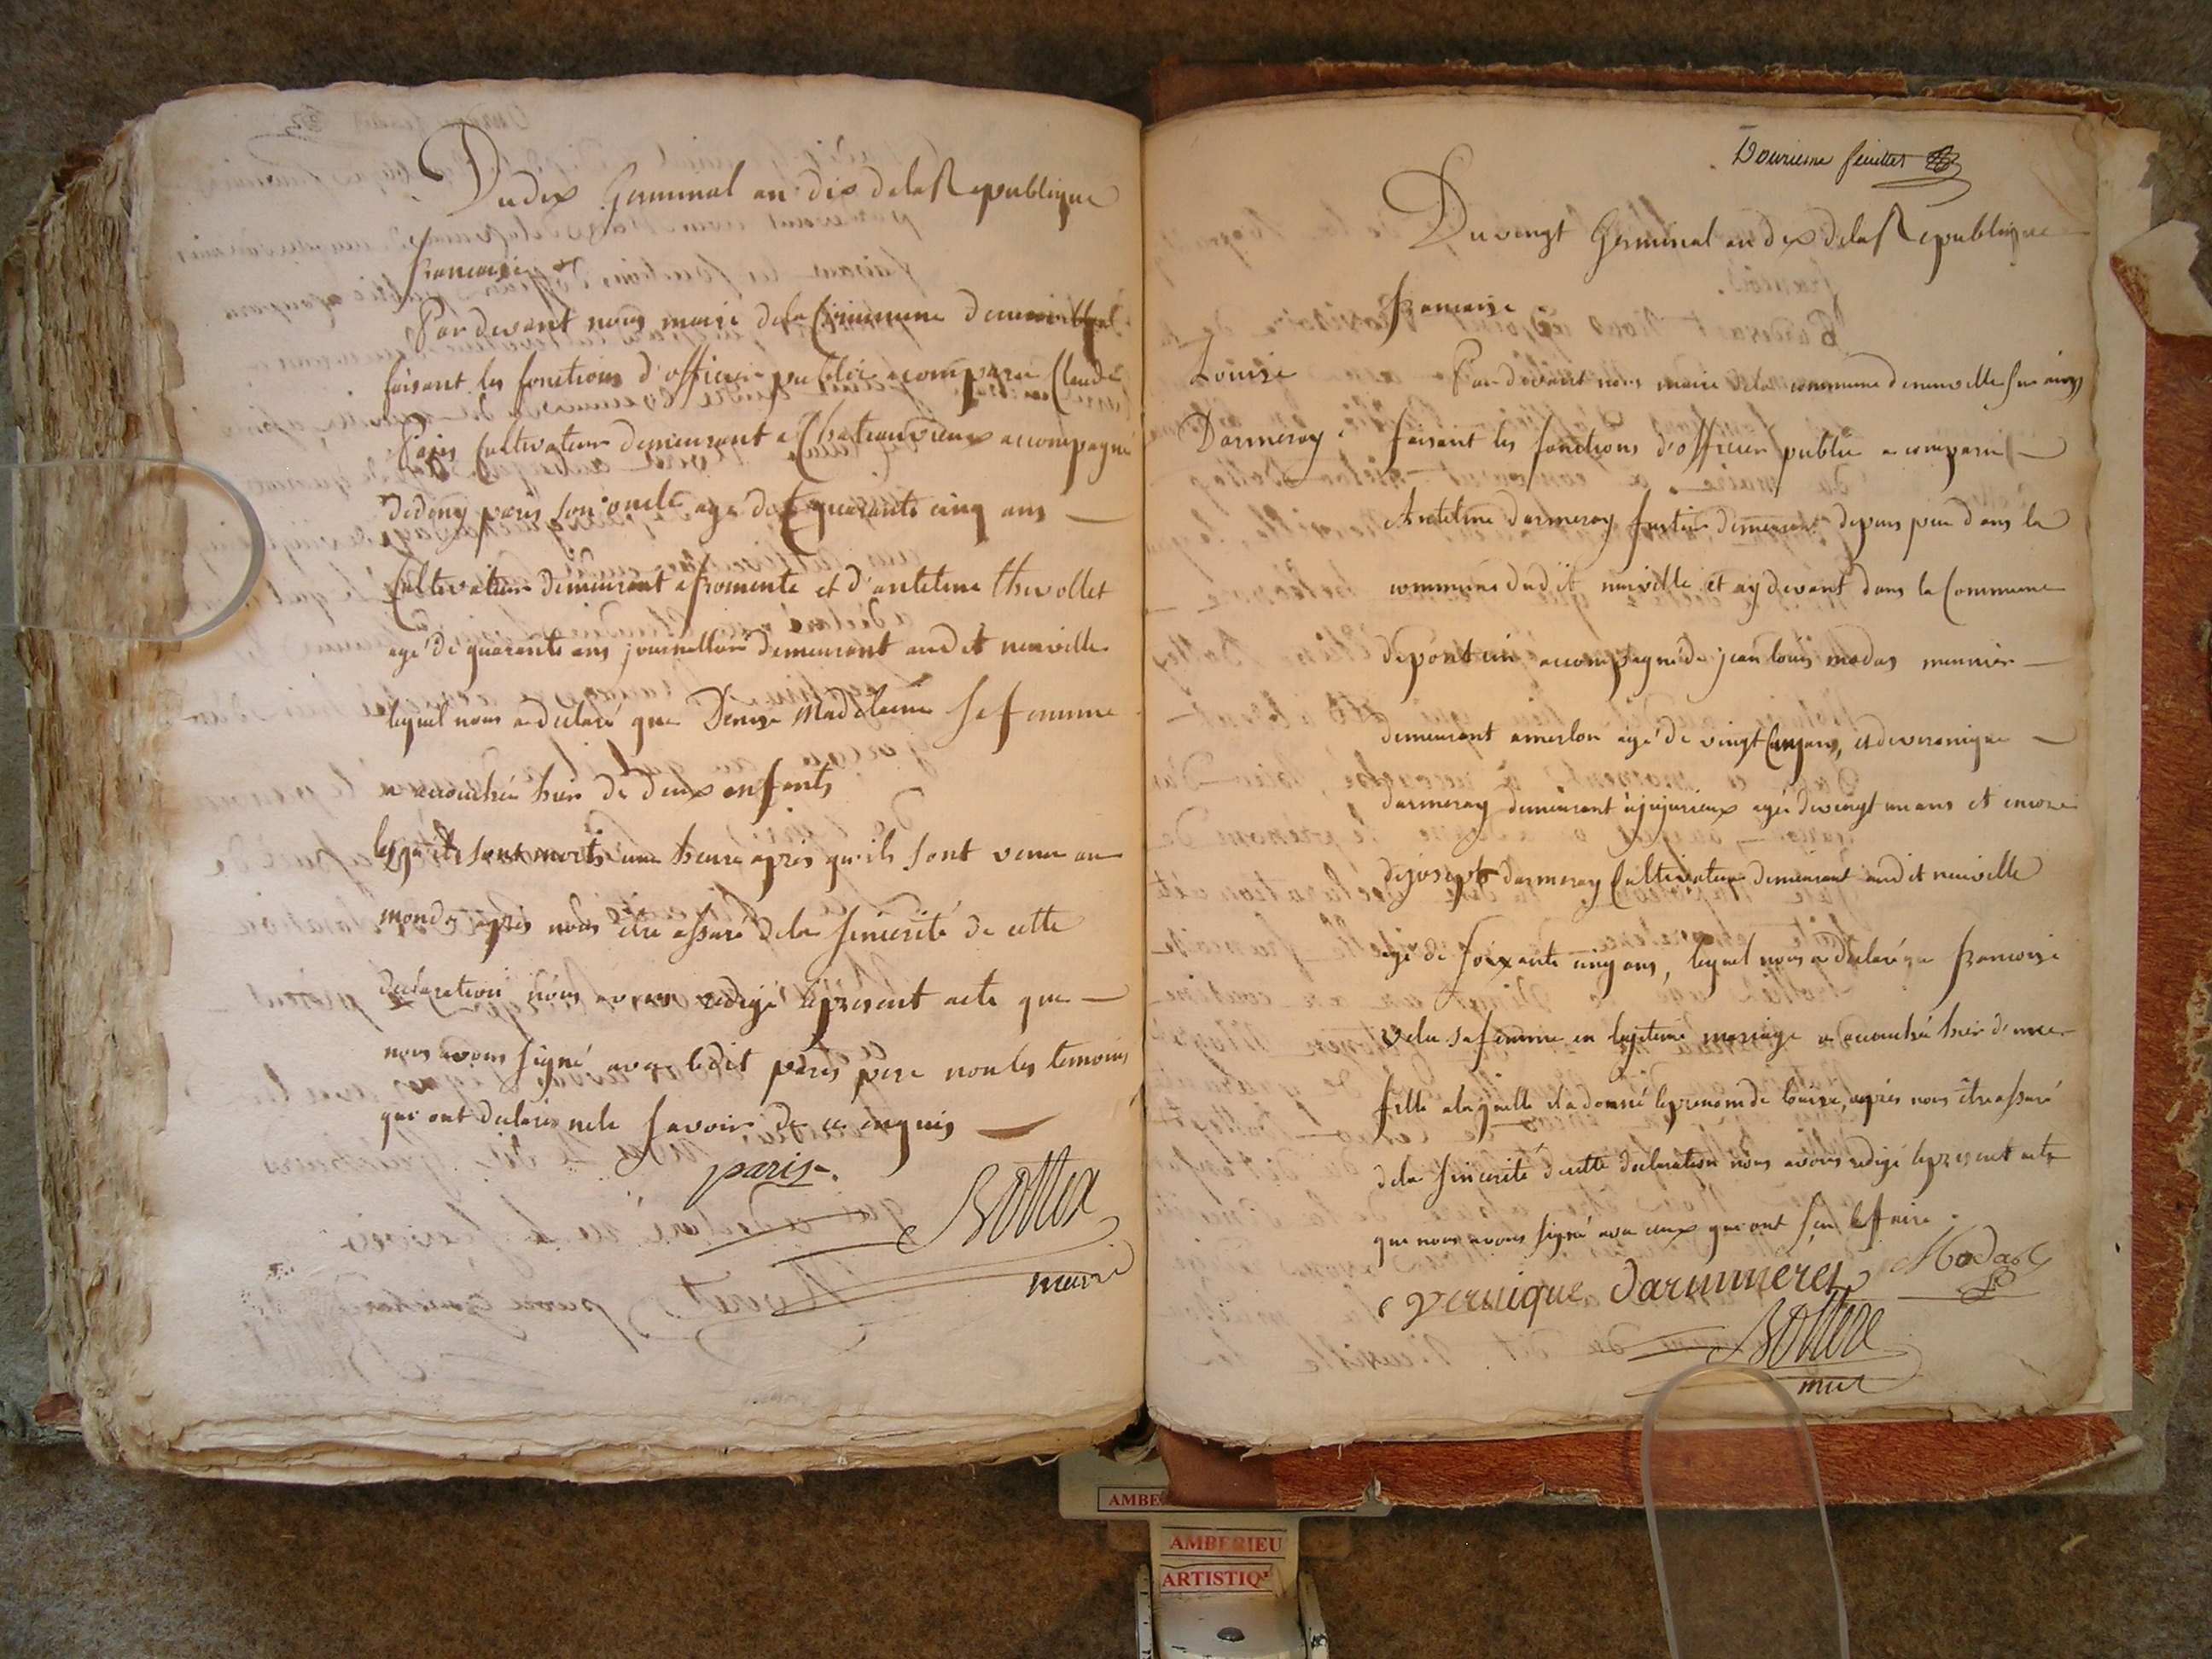 Du dix Germinal an dix de la Republique
francaise
Par devant nous maire de la Commune de
faisant les fonctions d'officier public a comparu Claude
Paris Cultivateur demeurant a Chateauvieux accompagné
de deny paris son oncle agé de quarante cinq ans
Cultivateur demeurant a fromente et d'antelme thevollet
agé de quarante ans journellier demeurant audit neuville
lequel nous a declaré que Denise Madeleine sa femme
a accouchée hier de deux enfants
lesquels sont morts une heure apres qu'ils sont venu au
monde apres nous être assuré de la sincerité de cette
declaration nous avons redigé le present acte que
nous avons signé avec ledit paris pere non les temoins
qui ont declarés ne le savoir de ce enquis
paris
Bottex
maire
Douzieme feuillet
Du vingt Germinal an dix de la Republique
francaise
Louise
Darmeray
Par devant nous maire de la commune de neuville sur ains
faisant les fonctions d'officier public a comparu
Antelme darmeray demeurant depuis peu dans la
commune dudit neuville et cy devant dans la Commune
de pont ain accompagné de jean louis modas meunier
demeurant a merlon agé de vingt cinq ans, et de veronique
darmeray demeurant à jujurieux agée de vingt un ans et encore
de joseph darmeray Cultivateur demeurant audit neuville
agé de soixante cinq ans, lequel nous a declaré que francoise
velu sa femme en legitime mariage a accouchée hier d'une
fille a laquelle il a donné le prenom de louise, apres nous être assuré
de la sincerité de cette declaration nous avons redigé le present acte
que nous avons signé avec ceux qui ont sçu le faire.
Modas
veruique darmmeret
Bottex
maire
AMBE
AMBERIEU
ARTISTIQ